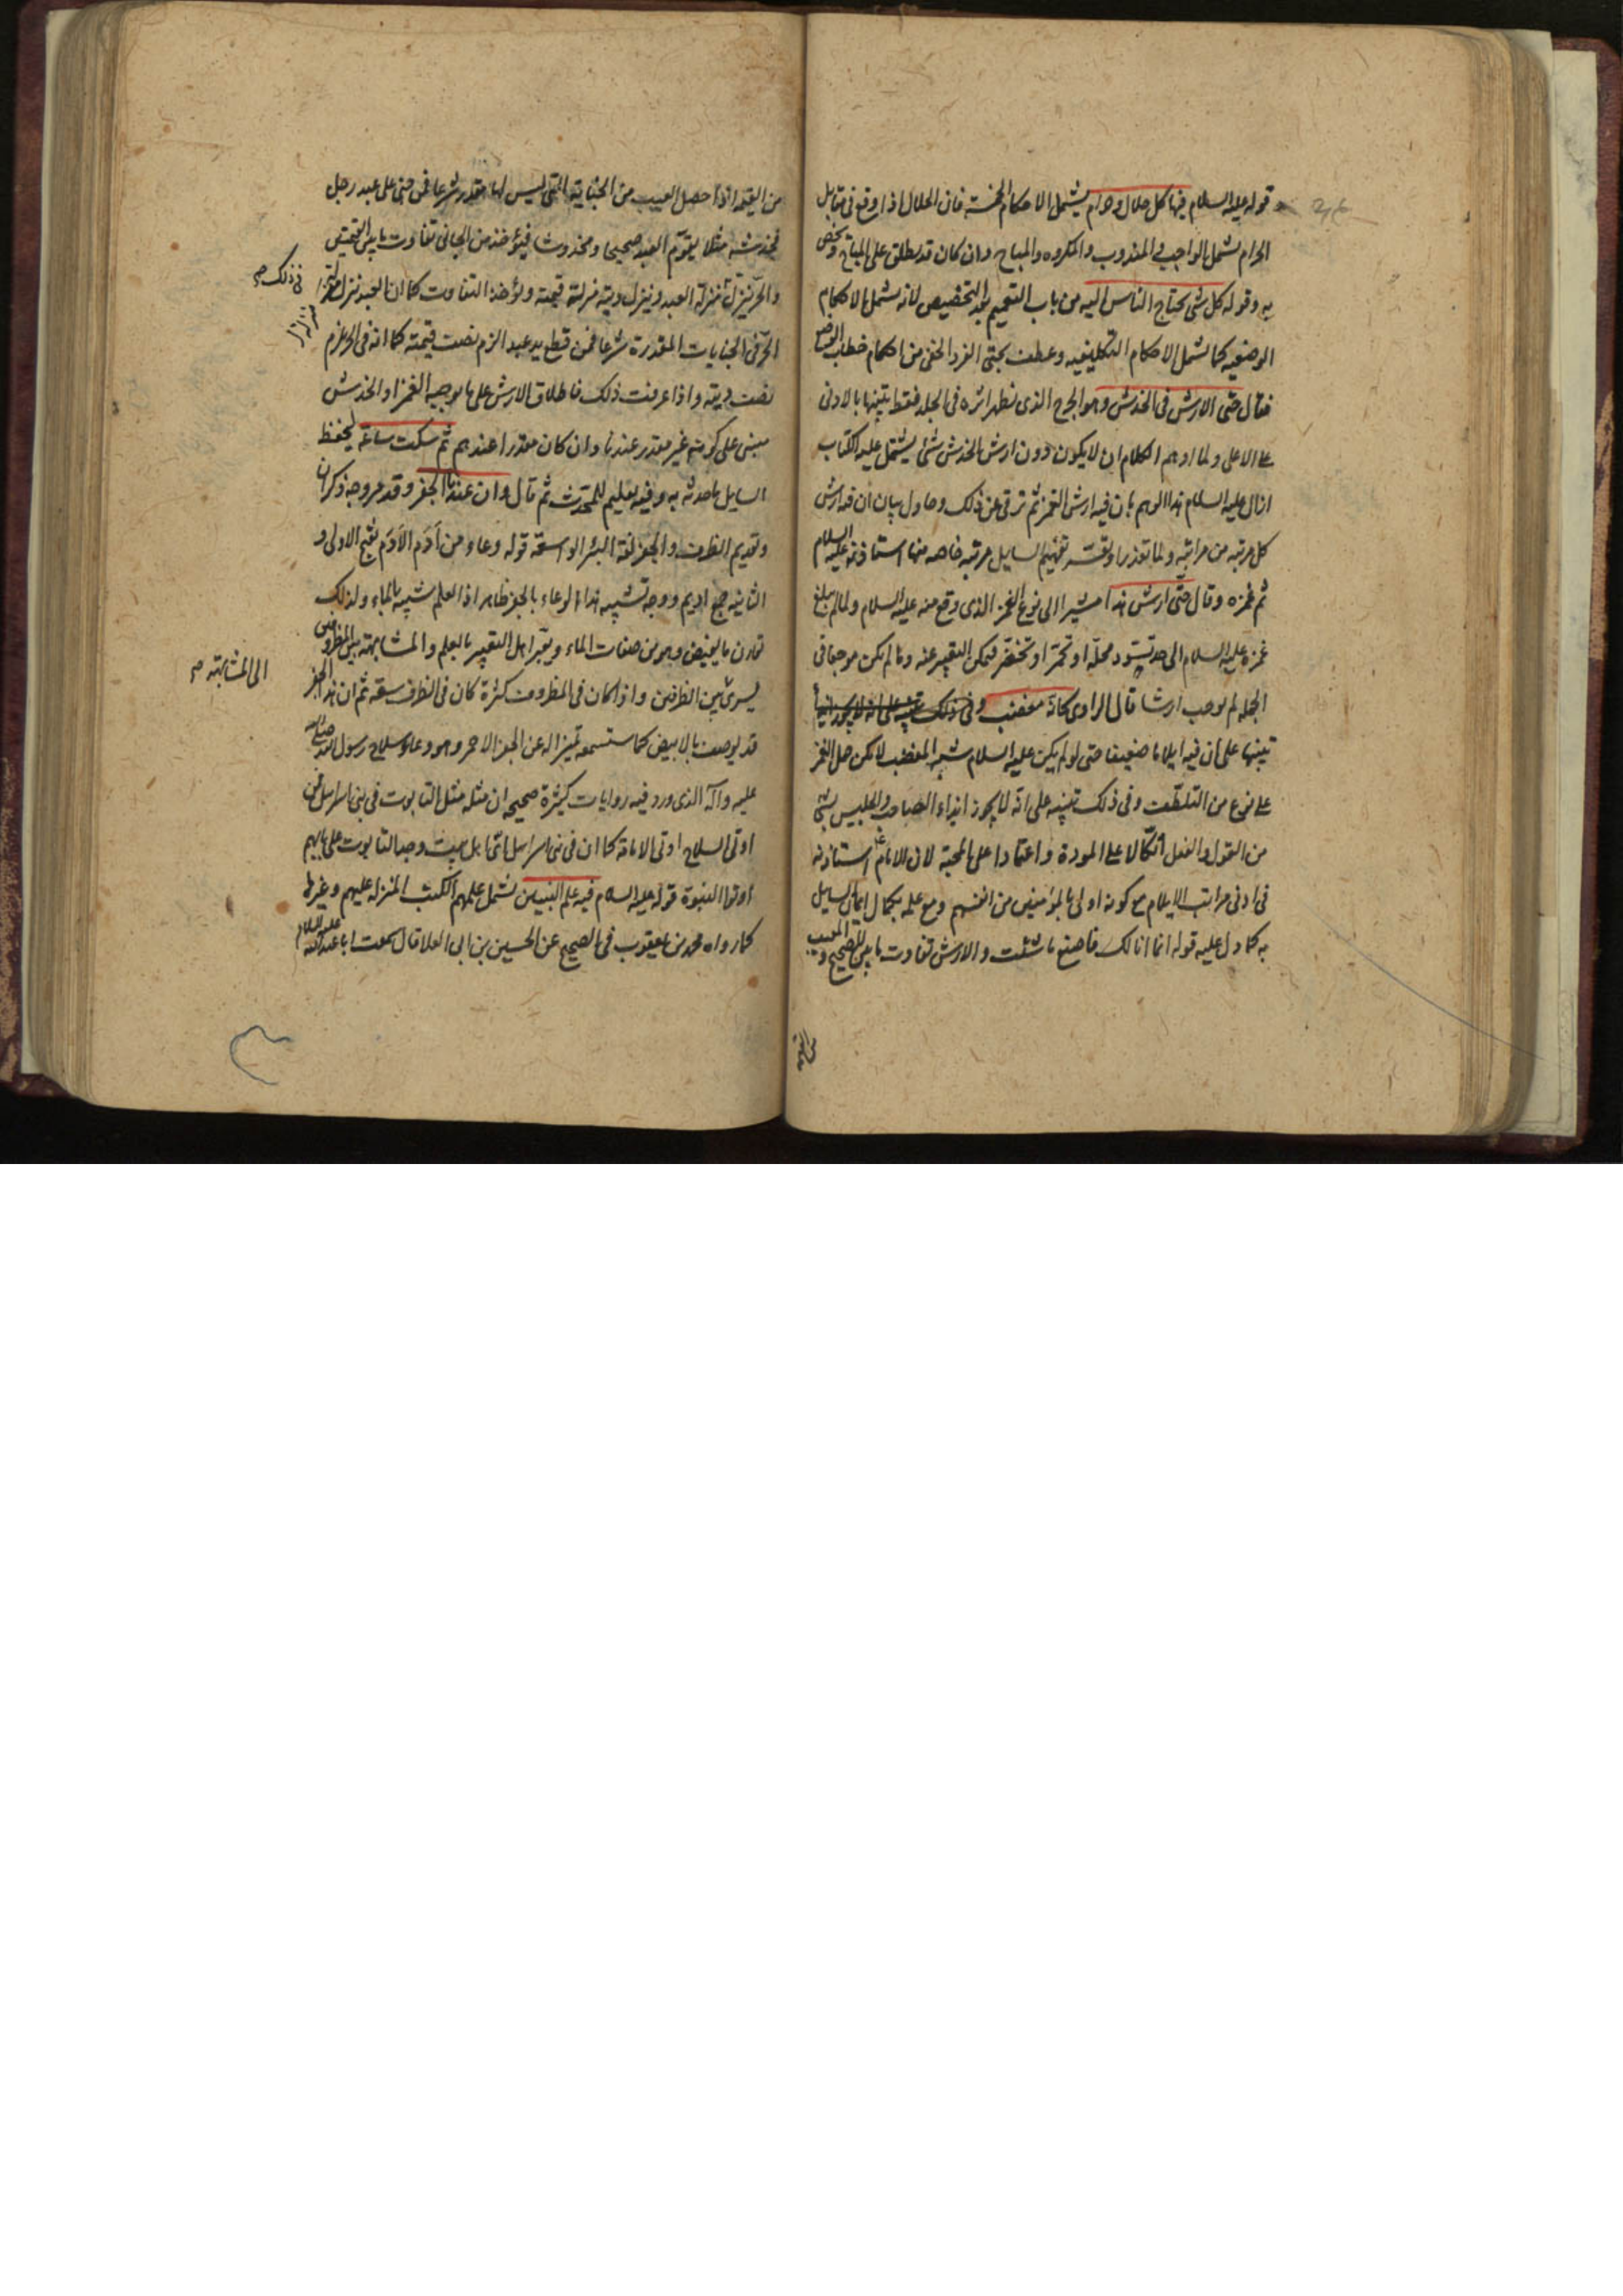 قوله عليه السلام فيها كل حلال وحرام يشتمل الاحكام الخمسة فان الحلال اذا وقع فى مقابل
الحرام يشمل الواجب والمندوب والمكروه والمباح وان كان قد يطلق على المباح ويخص
به وقوله كل شئ يحتاج الناس اليه من باب التعميم بعد التخصيص لانه يشمل الاحكام
الوضعيه كما يشمل الاحكام التكليفيه وعطف بحتى الفرد الخفى من احكام خطاب الوضع
فقال حتى الارش فى الخدش وهو الجرح الذى يظهر اثره فى الجلد فقط تنبيها بالادنى
على الاعلى ولما اوهم الكلام ان لا يكون دون ارش الخدش شئ يشتمل عليه الكتاب
ازال عليه السلام هذا الوهم بان فيه ارش الغمز ثم ترقى عن ذلك وحاول بيان ان فيه ارش
كل مرتبه من مراتبه ولما تعذر او تعسر تفهيم السايل مرتبه خاصه منها استاذنه عليه السلام
ثم غمزه وقال حتى ارش هذا مشيرا الى نوع الغمز الذى وقع منه عليه السلام ولما لم يبلغ
غمزه عليه السلام الى حد يسود محله او تحمر او تخضر فيمكن التعبير عنه وما لم يكن موجعا فى
الجمله لم يوجب ارشا قال الراوى كانه مغضب وفى ذلك تنبيه على انه لا يجوز ايذاء
تنبيها على ان فيه ايلاما ضعيفا حتى لو لم يكن عليه السلام شبه المغضب لامكن حمل الغمز
على نوع من التلطف وفى ذلك تنبيه على انه لا يجوز ايذاء الصاحب والجليس بشئ
من القول والفعل اتكالا على المودة واعتمادا على المحبة لان الامام ع استاذنه
فى ادنى مراتب الايلام مع كونه اولى بالمؤمنين من انفسهم ومع علمه بكمال ايمان السايل
به كما دل عليه قوله انما انا لك فاصنع ما شئت والارش تفاوت ما بين الصحيح والمعيب
من القيمه
من القيمه اذا حصل العيب من الجناية التى ليس لها مقدر شرعا فمن جنى على عبد رجل
فخدشه مثلا يقوم العبد صحيحا ومخدوشا فيؤخذ من الجانى تفاوت ما بين القيمتين
والحر ينزل منزلة العبد وينزل ديته منزلة قيمته ويؤخذ التفاوت كما ان العبد ينزل منزلة
فى ذلك صح
الحر فى الجنايات المقدرة شرعا فمن قطع يد عبد الزم نصف قيمته كما انه فى الحر غرم
نصف ديته واذا عرفت ذلك فاطلاق الارش على ما يوجبه الغمز او الخدش
مبنى على كونه غير مقدر عندنا وان كان مقدرا عندهم ثم سكت ساعة ليحفظ
السايل ما حدثه به وفيه تعليم للمتحدث ثم قال وان عندنا الجفر وقد مر وجه ذكر ان
وتقديم الظرف والجفر لغة البئر الواسعة قوله وعاء من ادم الادم بفتح الاولى و
الثانيه جمع اديم ووجه تشبيه هذا الوعاء بالجفر ظاهر اذ العلم شبيه بالماء ولذلك
تقارن بالفيض وهو من صفات الماء ويعبر اهل التعبير بالعلم والمشابهة بين المظروفين
يسرى بين الظرفين واذا كان فى المظروف كثرة كان فى الظرف سعة ثم ان هذا الجفر
الى المشابهة صح
قد يوصف بالابيض كما ستسمعه تميزا له عن الجفر الاحمر وهو وعاء سلاح رسول الله صلى الله
عليه وآله الذى ورد فيه روايات كثيرة صحيحه ان مثله مثل التابوت فى بنى اسرائيل فمن
اوتى السلاح اوتى الامامة كما ان فى بنى اسرائيل اى اهل بيت وجد التابوت على بابهم
اوتوا النبوة قوله عليه السلام فيه علم النبيين يشمل علمهم الكتب المنزله عليهم وغيرها
كما رواه محمد بن يعقوب فى الصحيح عن الحسين بن ابى العلا قال سمعت ابا عبد الله عليه السلام